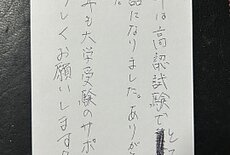 は高認試験で
になりました。ありが
も大学受験のサポ
しくお願いします